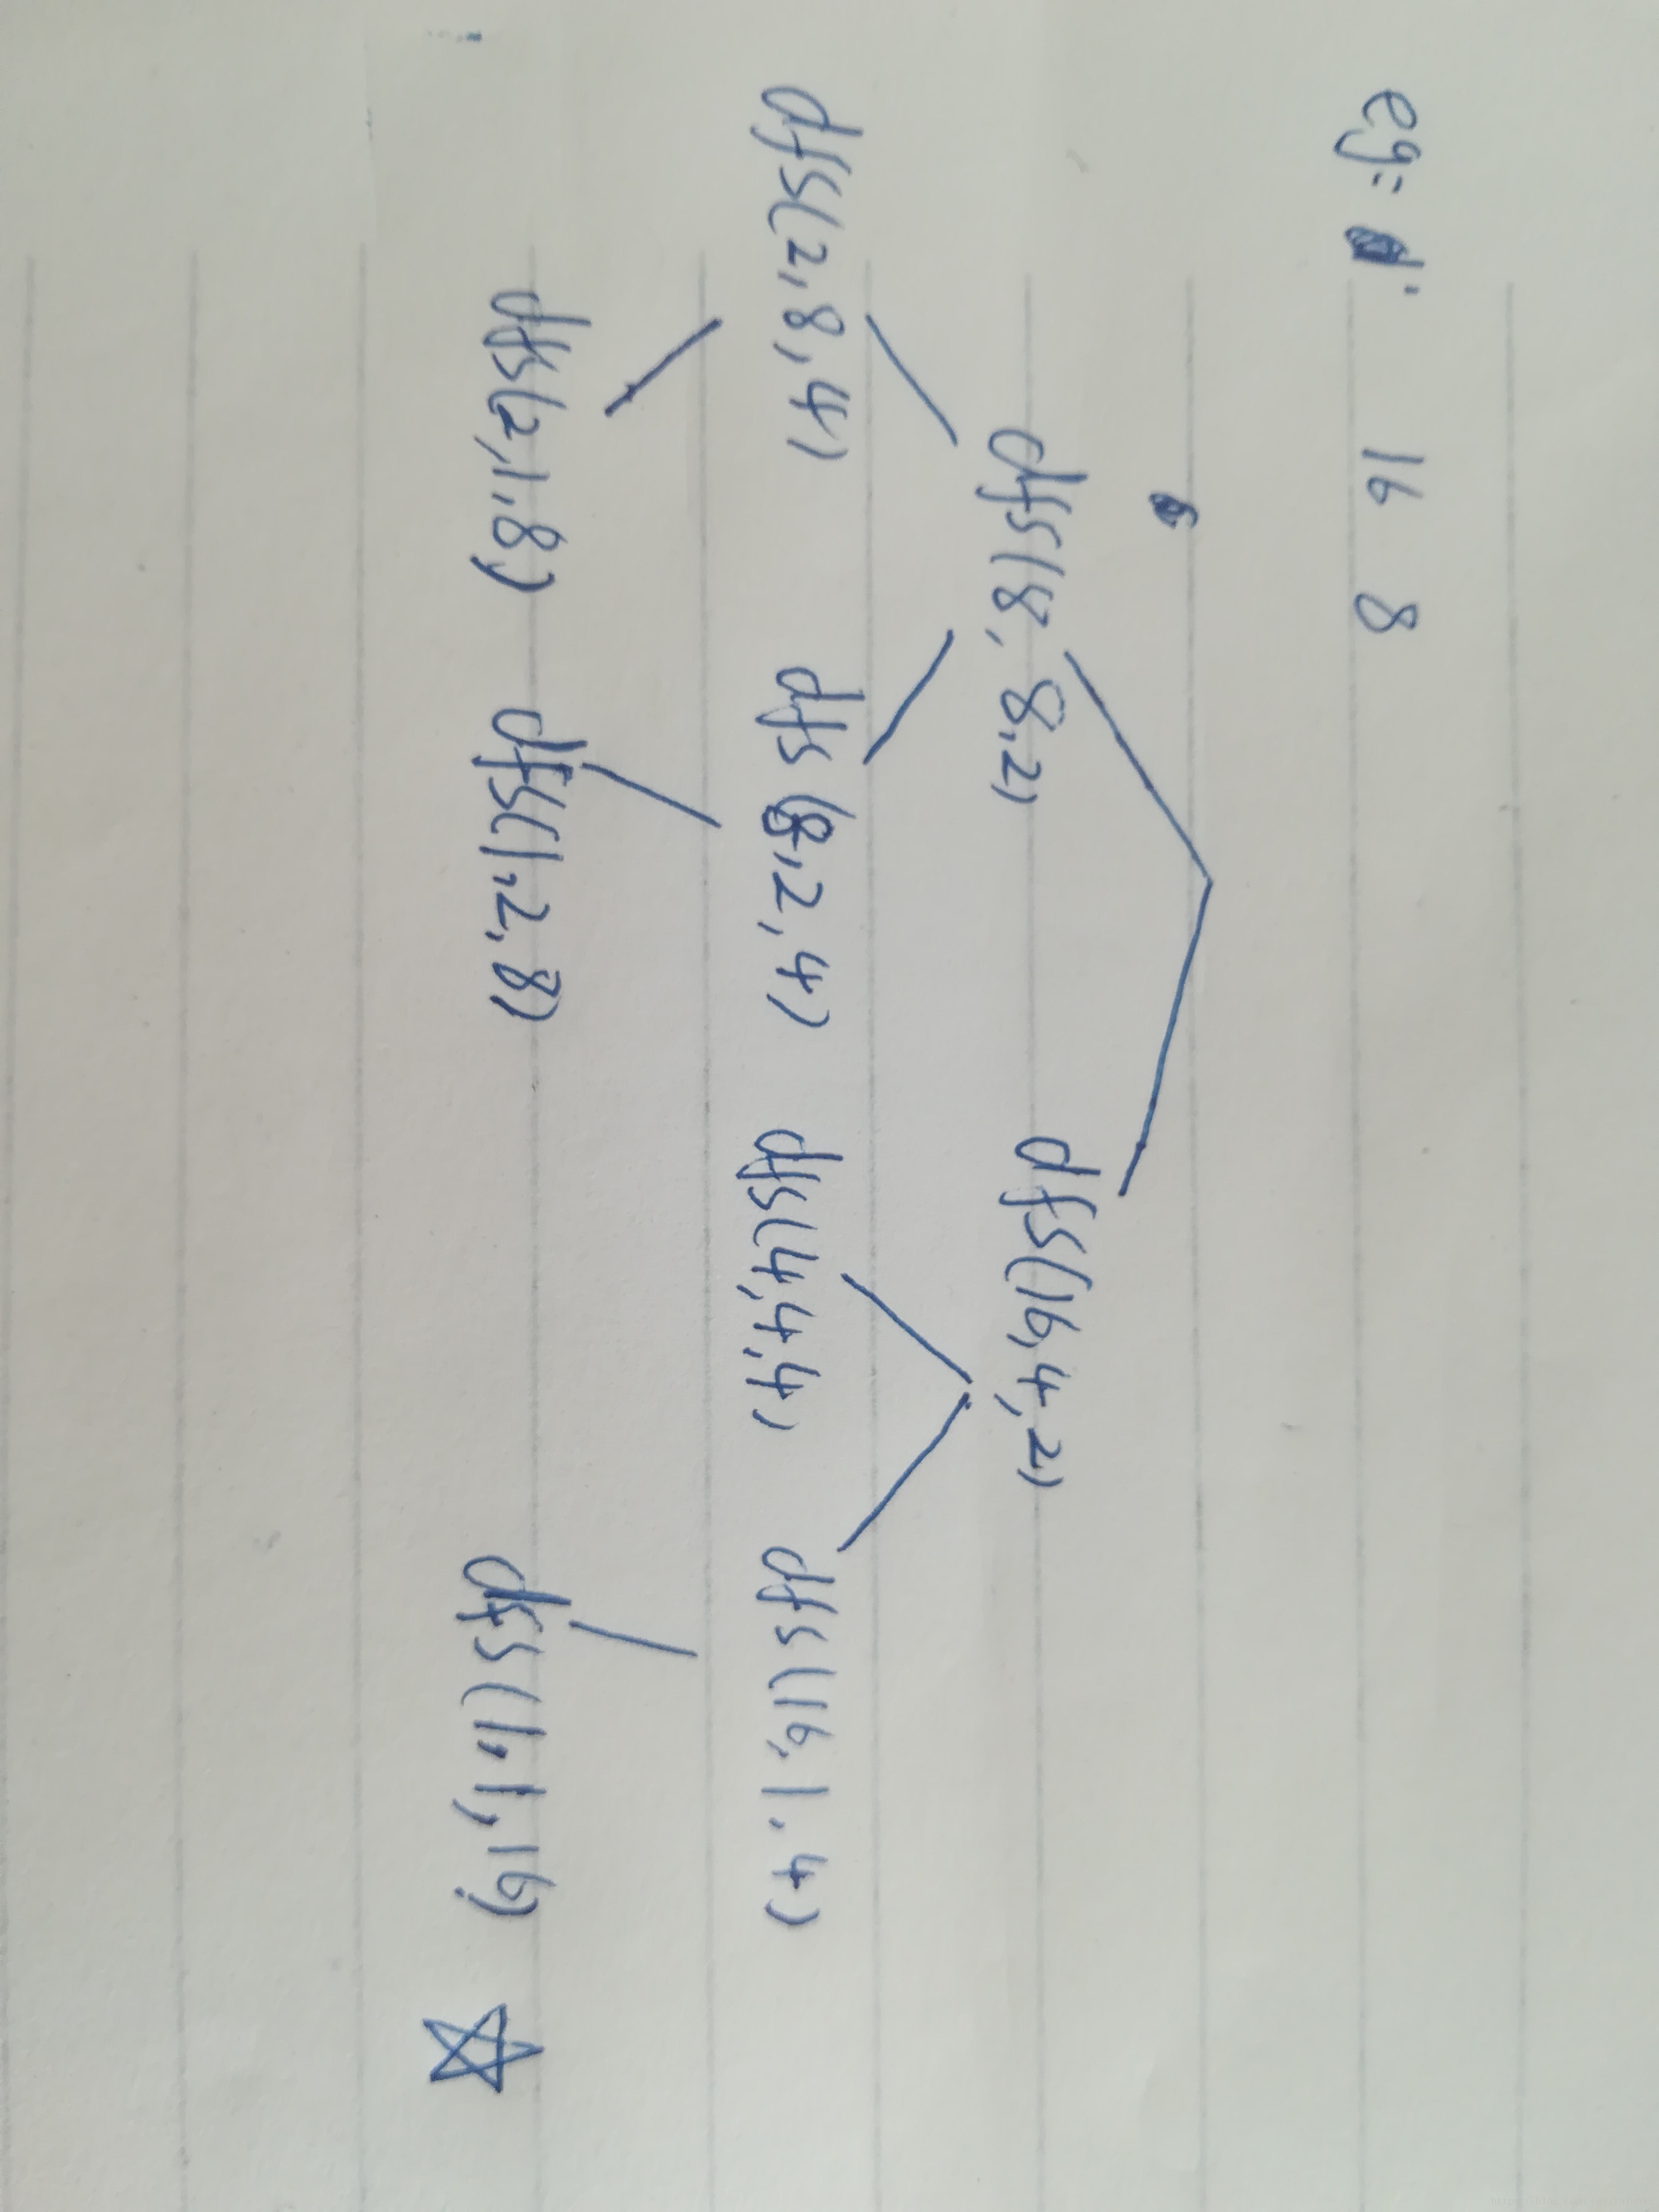 eg: 16 8
dfs(8,8,2) dfs(16,4,2)
dfs(2,8,4) dfs(8,2,4) dfs(4,4,4) dfs(16,1,4)
dfs(2,1,8) dfs(1,2,8) dfs(1,1,16)